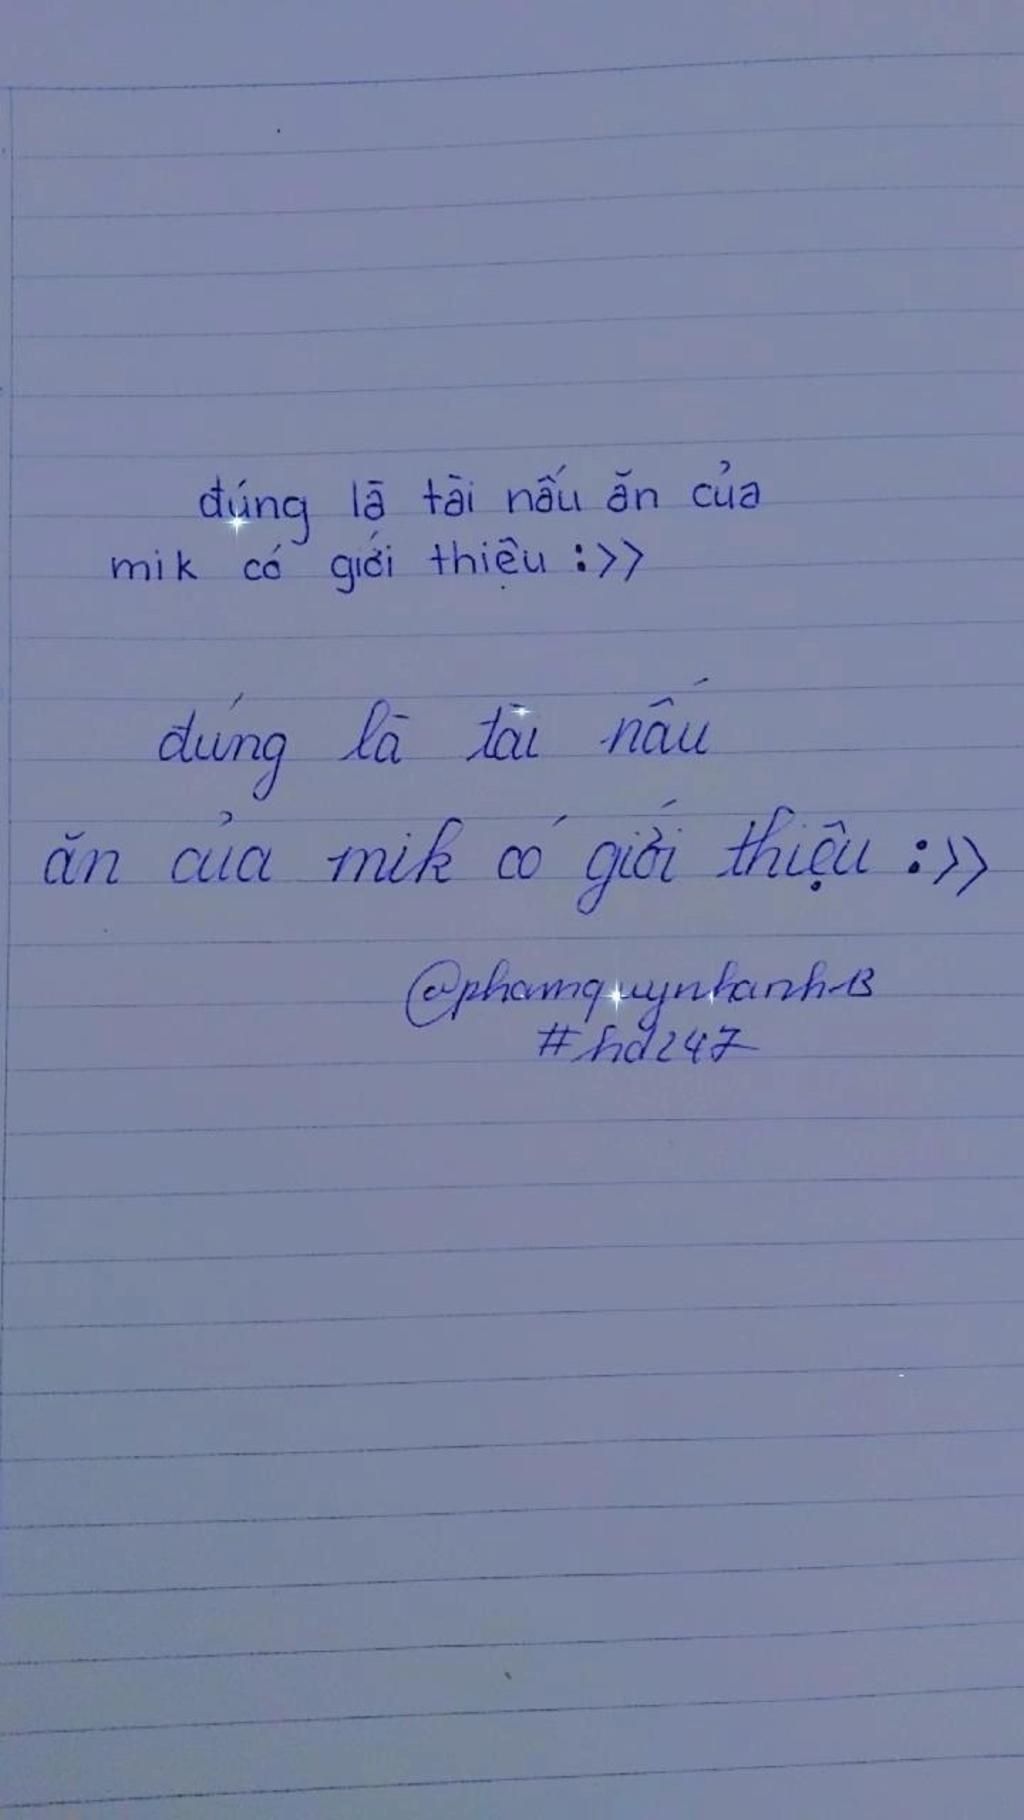 đúng là tài nấu ăn của
mik có giới thiệu :>>
đúng là tài nấu
ăn của mik có giới thiệu :>>
@phamquynhanh-B
#hd247